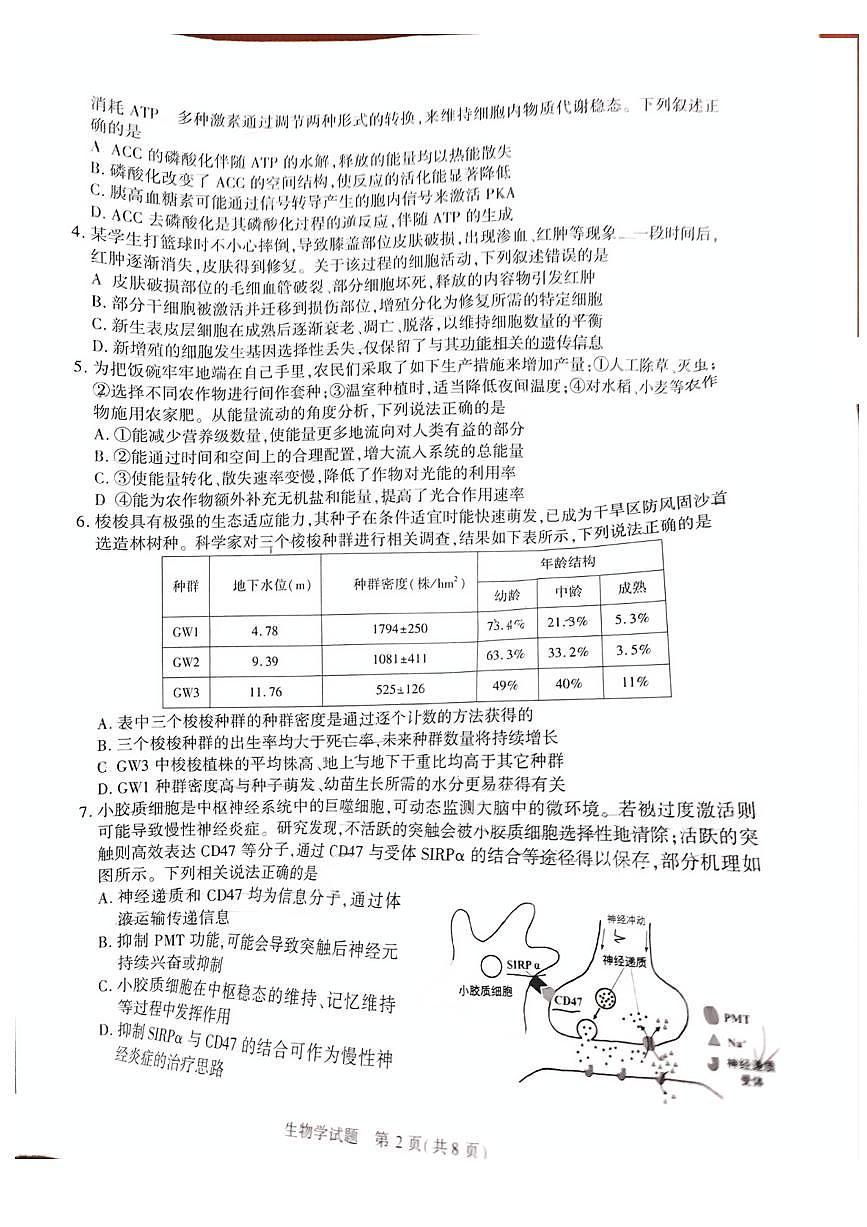 消耗 ATP 多种激素通过调节两种形式的转换,来维持细胞内物质代谢稳态。下列叙述正
确的是
A ACC 的磷酸化伴随 ATP 的水解,释放的能量均以热能散失
B. 磷酸化改变了 ACC 的空间结构,使反应的活化能显著降低
C. 胰高血糖素可能通过信号转导产生的胞内信号来激活 PKA
D. ACC 去磷酸化是其磷酸化过程的逆反应,伴随 ATP 的生成
4. 某学生打篮球时不小心摔倒,导致膝盖部位皮肤破损,出现渗血、红肿等现象。一段时间后,
红肿逐渐消失,皮肤得到修复。关于该过程的细胞活动,下列叙述错误的是
A 皮肤破损部位的毛细血管破裂、部分细胞坏死,释放的内容物引发红肿
B. 部分干细胞被激活并迁移到损伤部位,增殖分化为修复所需的特定细胞
C. 新生表皮层细胞在成熟后逐渐衰老、凋亡、脱落,以维持细胞数量的平衡
D. 新增殖的细胞发生基因选择性丢失,仅保留了与其功能相关的遗传信息
5. 为把饭碗牢牢地端在自己手里,农民们采取了如下生产措施来增加产量:①人工除草、灭虫;
②选择不同农作物进行间作套种;③温室种植时,适当降低夜间温度;④对水稻、小麦等农作
物施用农家肥。从能量流动的角度分析,下列说法正确的是
A. ①能减少营养级数量,使能量更多地流向对人类有益的部分
B. ②能通过时间和空间上的合理配置,增大流入系统的总能量
C. ③使能量转化、散失速率变慢,降低了作物对光能的利用率
D ④能为农作物额外补充无机盐和能量,提高了光合作用速率
6. 梭梭具有极强的生态适应能力,其种子在条件适宜时能快速萌发,已成为干旱区防风固沙首
选造林树种。科学家对三个梭梭种群进行相关调查,结果如下表所示,下列说法正确的是
种群 地下水位(m) 种群密度(株/hm²) 年龄结构
幼龄 中龄 成熟
GW1 4.78 1794±250 73.4% 21.3% 5.3%
GW2 9.39 1081±411 63.3% 33.2% 3.5%
GW3 11.76 525±126 49% 40% 11%
A. 表中三个梭梭种群的种群密度是通过逐个计数的方法获得的
B. 三个梭梭种群的出生率均大于死亡率,未来种群数量将持续增长
C GW3 中梭梭植株的平均株高、地上与地下干重比均高于其它种群
D. GW1 种群密度高与种子萌发、幼苗生长所需的水分更易获得有关
7. 小胶质细胞是中枢神经系统中的巨噬细胞,可动态监测大脑中的微环境。若被过度激活则
可能导致慢性神经炎症。研究发现,不活跃的突触会被小胶质细胞选择性地清除;活跃的突
触则高效表达 CD47 等分子,通过 CD47 与受体 SIRPα 的结合等途径得以保存,部分机理如
图所示。下列相关说法正确的是
A. 神经递质和 CD47 均为信息分子,通过体
液运输传递信息
B. 抑制 PMT 功能,可能会导致突触后神经元
持续兴奋或抑制
C. 小胶质细胞在中枢稳态的维持、记忆维持
等过程中发挥作用
D. 抑制 SIRPα 与 CD47 的结合可作为慢性神
经炎症的治疗思路
神经冲动
SIRP α
神经递质
小胶质细胞
CD47
PMT
Na⁺
神经递质
受体
生物学试题 第 2 页(共 8 页)